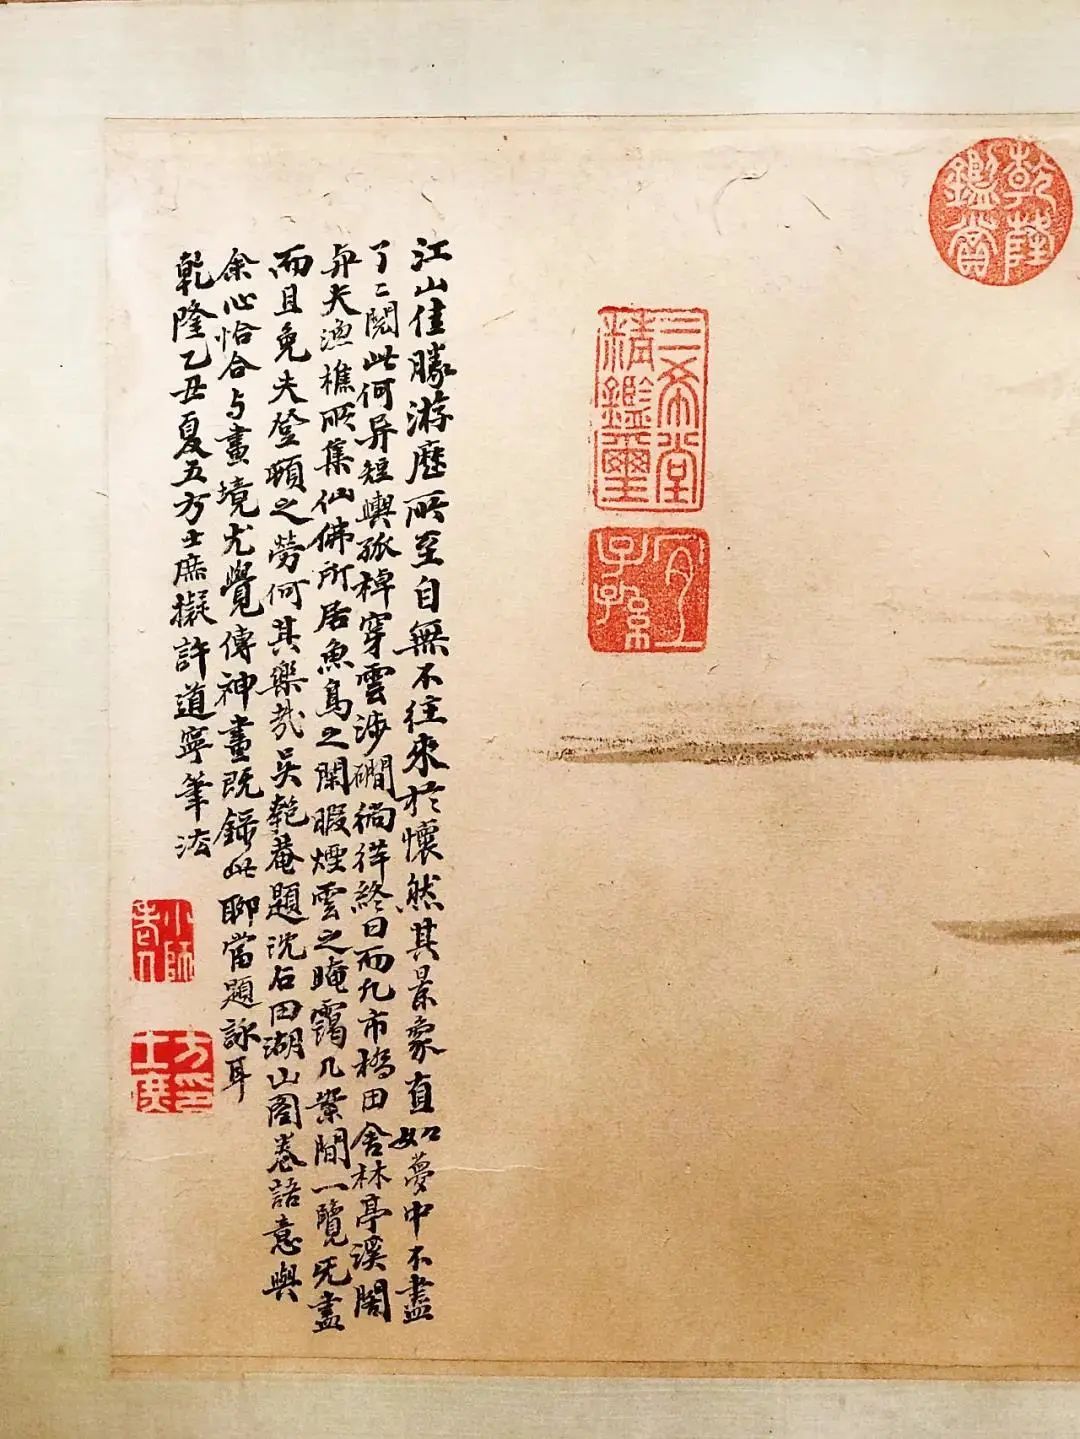 乾隆鑑賞
三希堂
精鑑璽
宜
子孫
江山佳勝游歷所至自無不往來於懷然其景象直如夢中不盡
了々閱此何异短輿孤棹穿雲涉磵徜徉終日而凡市橋田舍林亭溪閣
与夫漁樵所集仙佛所居魚鳥之閑暇煙雲之晻靄几案間一覽旡盡
而且免夫登頓之勞何其樂哉吳匏菴題沈石田湖山圖卷語意與
余心恰合与畫境尤覺傳神畫既錄此聊當題詠耳
乾隆乙丑夏五方士庶擬許道寧筆法
小師
老人
方印
士庶